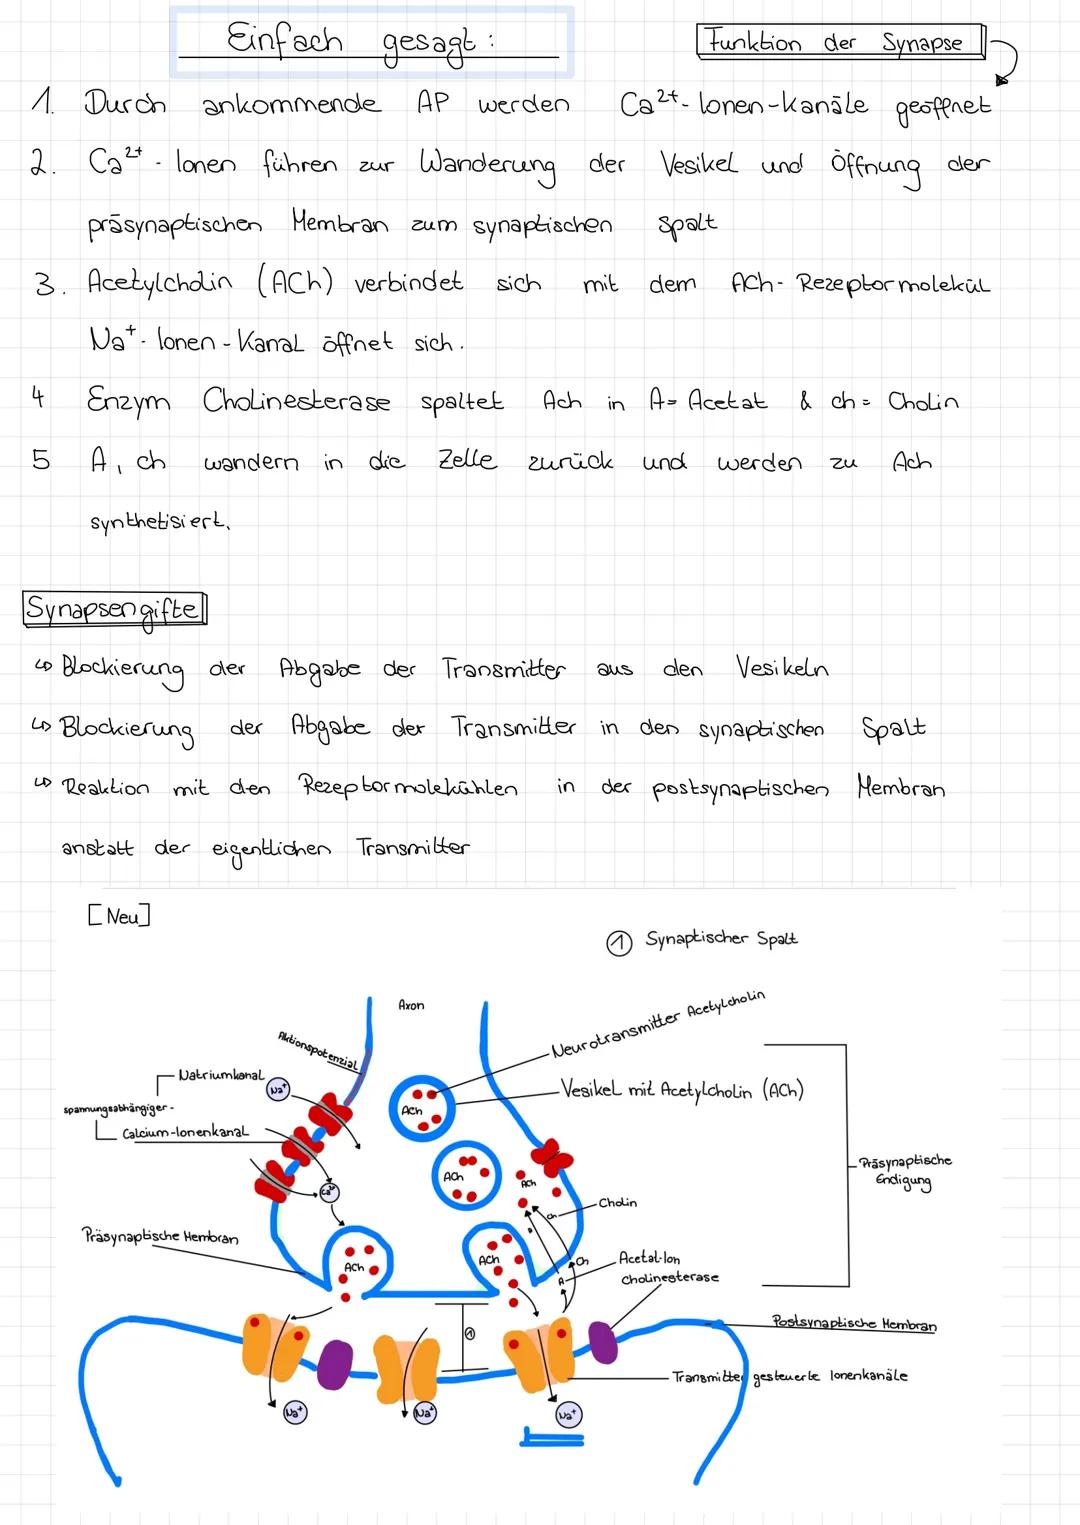 Einfach gesagt:
Funktion der Synapse
1. Durch ankommende AP werden Ca²⁺-Ionen-kanäle geöffnet
2. Ca²⁺-Ionen führen zur Wanderung der Vesikel und Öffnung der
präsynaptischen Membran zum synaptischen Spalt
3. Acetylcholin (ACh) verbindet sich mit dem ACh-Rezeptormolekül
Na⁺-Ionen-Kanal öffnet sich.
4 Enzym Cholinesterase spaltet Ach in A= Acetat & ch= Cholin
5 A, ch wandern in die Zelle zurück und werden zu Ach
synthetisiert.
Synapsengifte
↳ Blockierung der Abgabe der Transmitter aus den Vesikeln
↳ Blockierung der Abgabe der Transmitter in den synaptischen Spalt
↳ Reaktion mit den Rezeptormolekühlen in der postsynaptischen Membran
anstatt der eigentlichen Transmitter
[Neu]
① Synaptischer Spalt
Axon
Aktionspotenzial
Neurotransmitter Acetylcholin
Natriumkanal
Na⁺
Vesikel mit Acetylcholin (ACh)
spannungsabhängiger-
Calcium-Ionenkanal
ACh
Präsynaptische Endigung
ACh
ACh
Ca²⁺
Cholin
Ch
A
Präsynaptische Membran
ACh
ACh
Ch
A
Acetat-Ion
Cholinesterase
Postsynaptische Membran
①
Transmitter gesteuerte Ionenkanäle
Na⁺
Na⁺
Na⁺